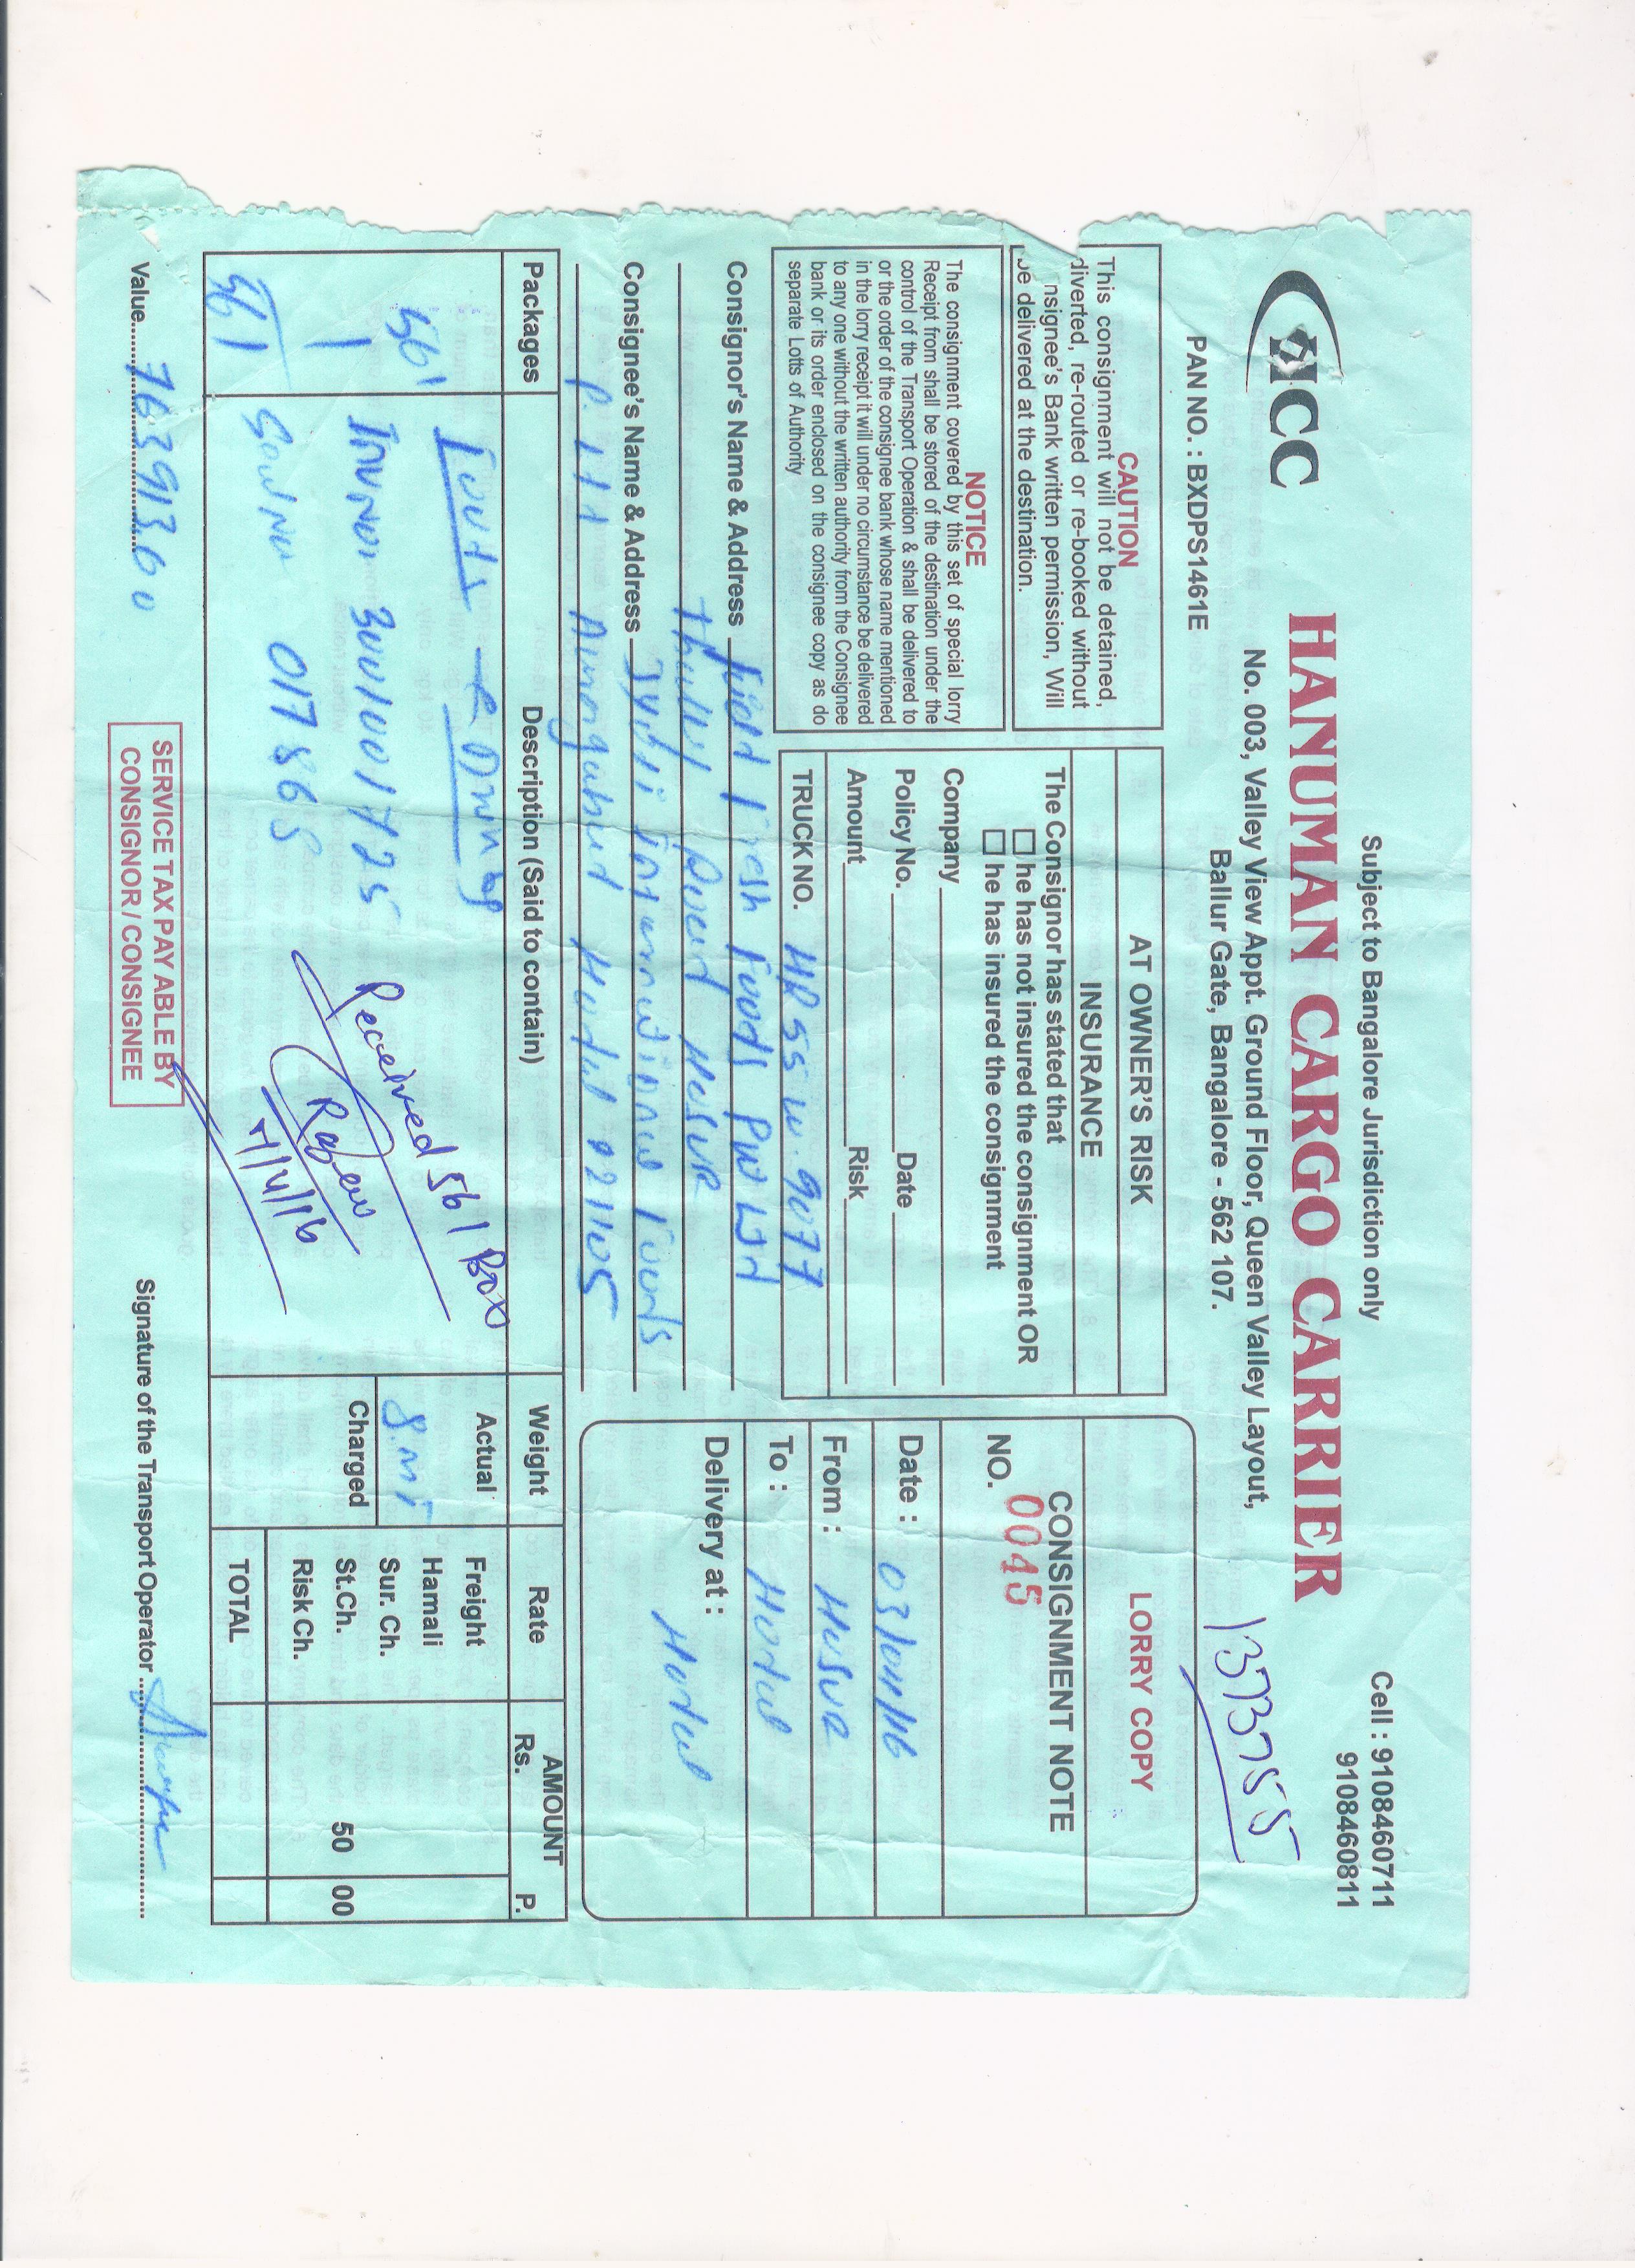 Subject to Bangalore Jurisdiction only
Cell : 9108460711
9108460811
HCC
HANUMAN CARGO CARRIER
No. 003, Valley View Appt. Ground Floor, Queen Valley Layout,
Ballur Gate, Bangalore - 562 107.
PAN NO. : BXDPS1461E
1373755
CAUTION
This consignment will not be detained,
diverted, re-routed or re-booked without
nsignee's Bank written permission, Will
be delivered at the destination.
NOTICE
The consignment covered by this set of special lorry
Receipt from shall be stored of the destination under the
control of the Transport Operation & shall be delivered to
or the order of the consignee bank whose name mentioned
in the lorry receipt it will under no circumstance be delivered
to any one without the written authority from the Consignee
bank or its order enclosed on the consignee copy as do
separate Lotts of Authority
AT OWNER'S RISK
INSURANCE
The Consignor has stated that
he has not insured the consignment OR
he has insured the consignment
Company
Policy No. Date
Amount Risk
TRUCK NO. HR 55 W. 9077
LORRY COPY
CONSIGNMENT NOTE
NO. 0045
Date : 03/04/16
From : Hosur
To : Hodal
Delivery at :
Hodal
Consignor's Name & Address Field Fresh Foods Pvt Ltd
Hosur
Consignee's Name & Address International Foods
Aurangabad Hodal 121105
Packages Description (Said to contain) Weight Rate AMOUNT
Rs. P.
561
1
561
Foods
Inv no. 3001001725
017865
Received 561 Box
7/4/16
Actual
8. MT
Charged
Freight
Hamali
Sur. Ch.
St.Ch. 50 00
Risk Ch.
TOTAL
Value 763913.60
SERVICE TAX PAY ABLE BY
CONSIGNOR / CONSIGNEE
Signature of the Transport Operator